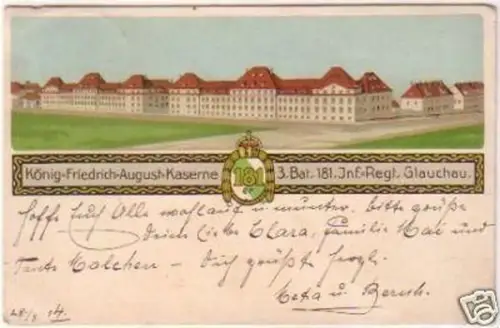 König-Friedrich-August-Kaserne 181 3. Bat. 181. Inf.-Regt. Glauchau.
hoffe Euch Alle wohlauf u. munter. bitte grüße
Deine liebe Clara, Familie Mai und
Tante Malchen - Dich grüßt herzl.
Meta u.
28./3 14.